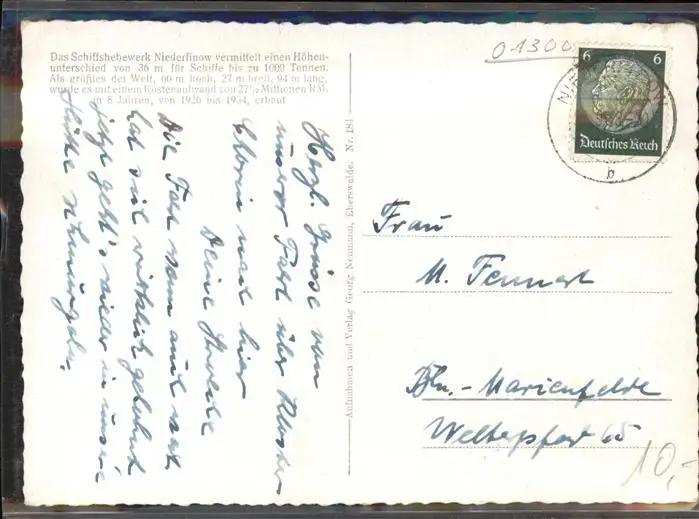 Das Schiffshebewerk Niederfinow vermittelt einen Höhen-
unterschied von 36 m für Schiffe bis zu 1000 Tonnen.
Als größtes der Welt, 60 m hoch, 27 m breit, 94 m lang,
wurde es mit einem Kostenaufwand von 27½ Millionen RM.
in 8 Jahren, von 1926 bis 1934, erbaut
Herzl. Grüsse von
unserer Fahrt über Kloster
Chorin nach hier
Deine
Die Fahrt
hat sich wirklich gelohnt
jetzt geht's wieder in unsere
Hütte
Aufnahmen und Verlag Georg Neumann, Eberswalde. Nr. 184
01300
6 6
Deutsches Reich
b
Frau
M. Fennert
Bln.-Marienfelde
Weltepfad 65
10,-